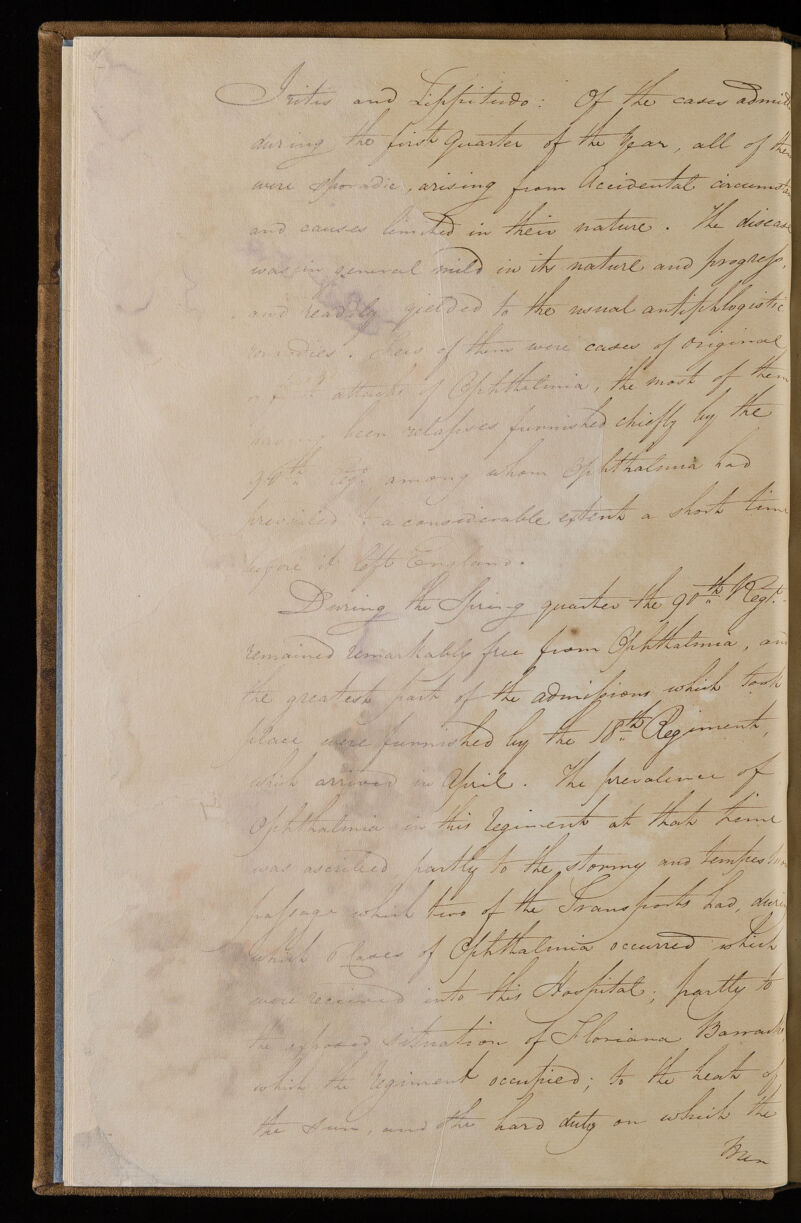 Iritis and Lippitudo: Of the cases admitt
during the first Quarter of the Year, all of them
were Sporadic, arising from Accidental circumsta
and causes limited in their nature. The disease
was in general mild in its nature and progress,
and readily yielded to the usual antiphlogistic
remedies. Few of them were cases of original
or first attacks of Ophthalmia, the most of them
having been relapses furnished chiefly by the
90th Regt. among whom Ophthalmia had
prevailed to a considerable extent a short time
before it left England.
During the Spring quarter the 90th Regt.
remained remarkably free from Ophthalmia, and
the greatest part of the admissions which took
place were furnished by the 18th Regiment,
which arrived in April. The prevalence of
Ophthalmia in this Regiment at that time
was ascribed partly to the stormy and tempestuou
passage which two of the Transports had, durin
which 6 Cases of Ophthalmia occurred which
were received into this Hospital; partly to
the exposed situation of Floriana Barracks
which the Regiment occupied; to the heat of
the Sun, and the hard duty on which the
Men